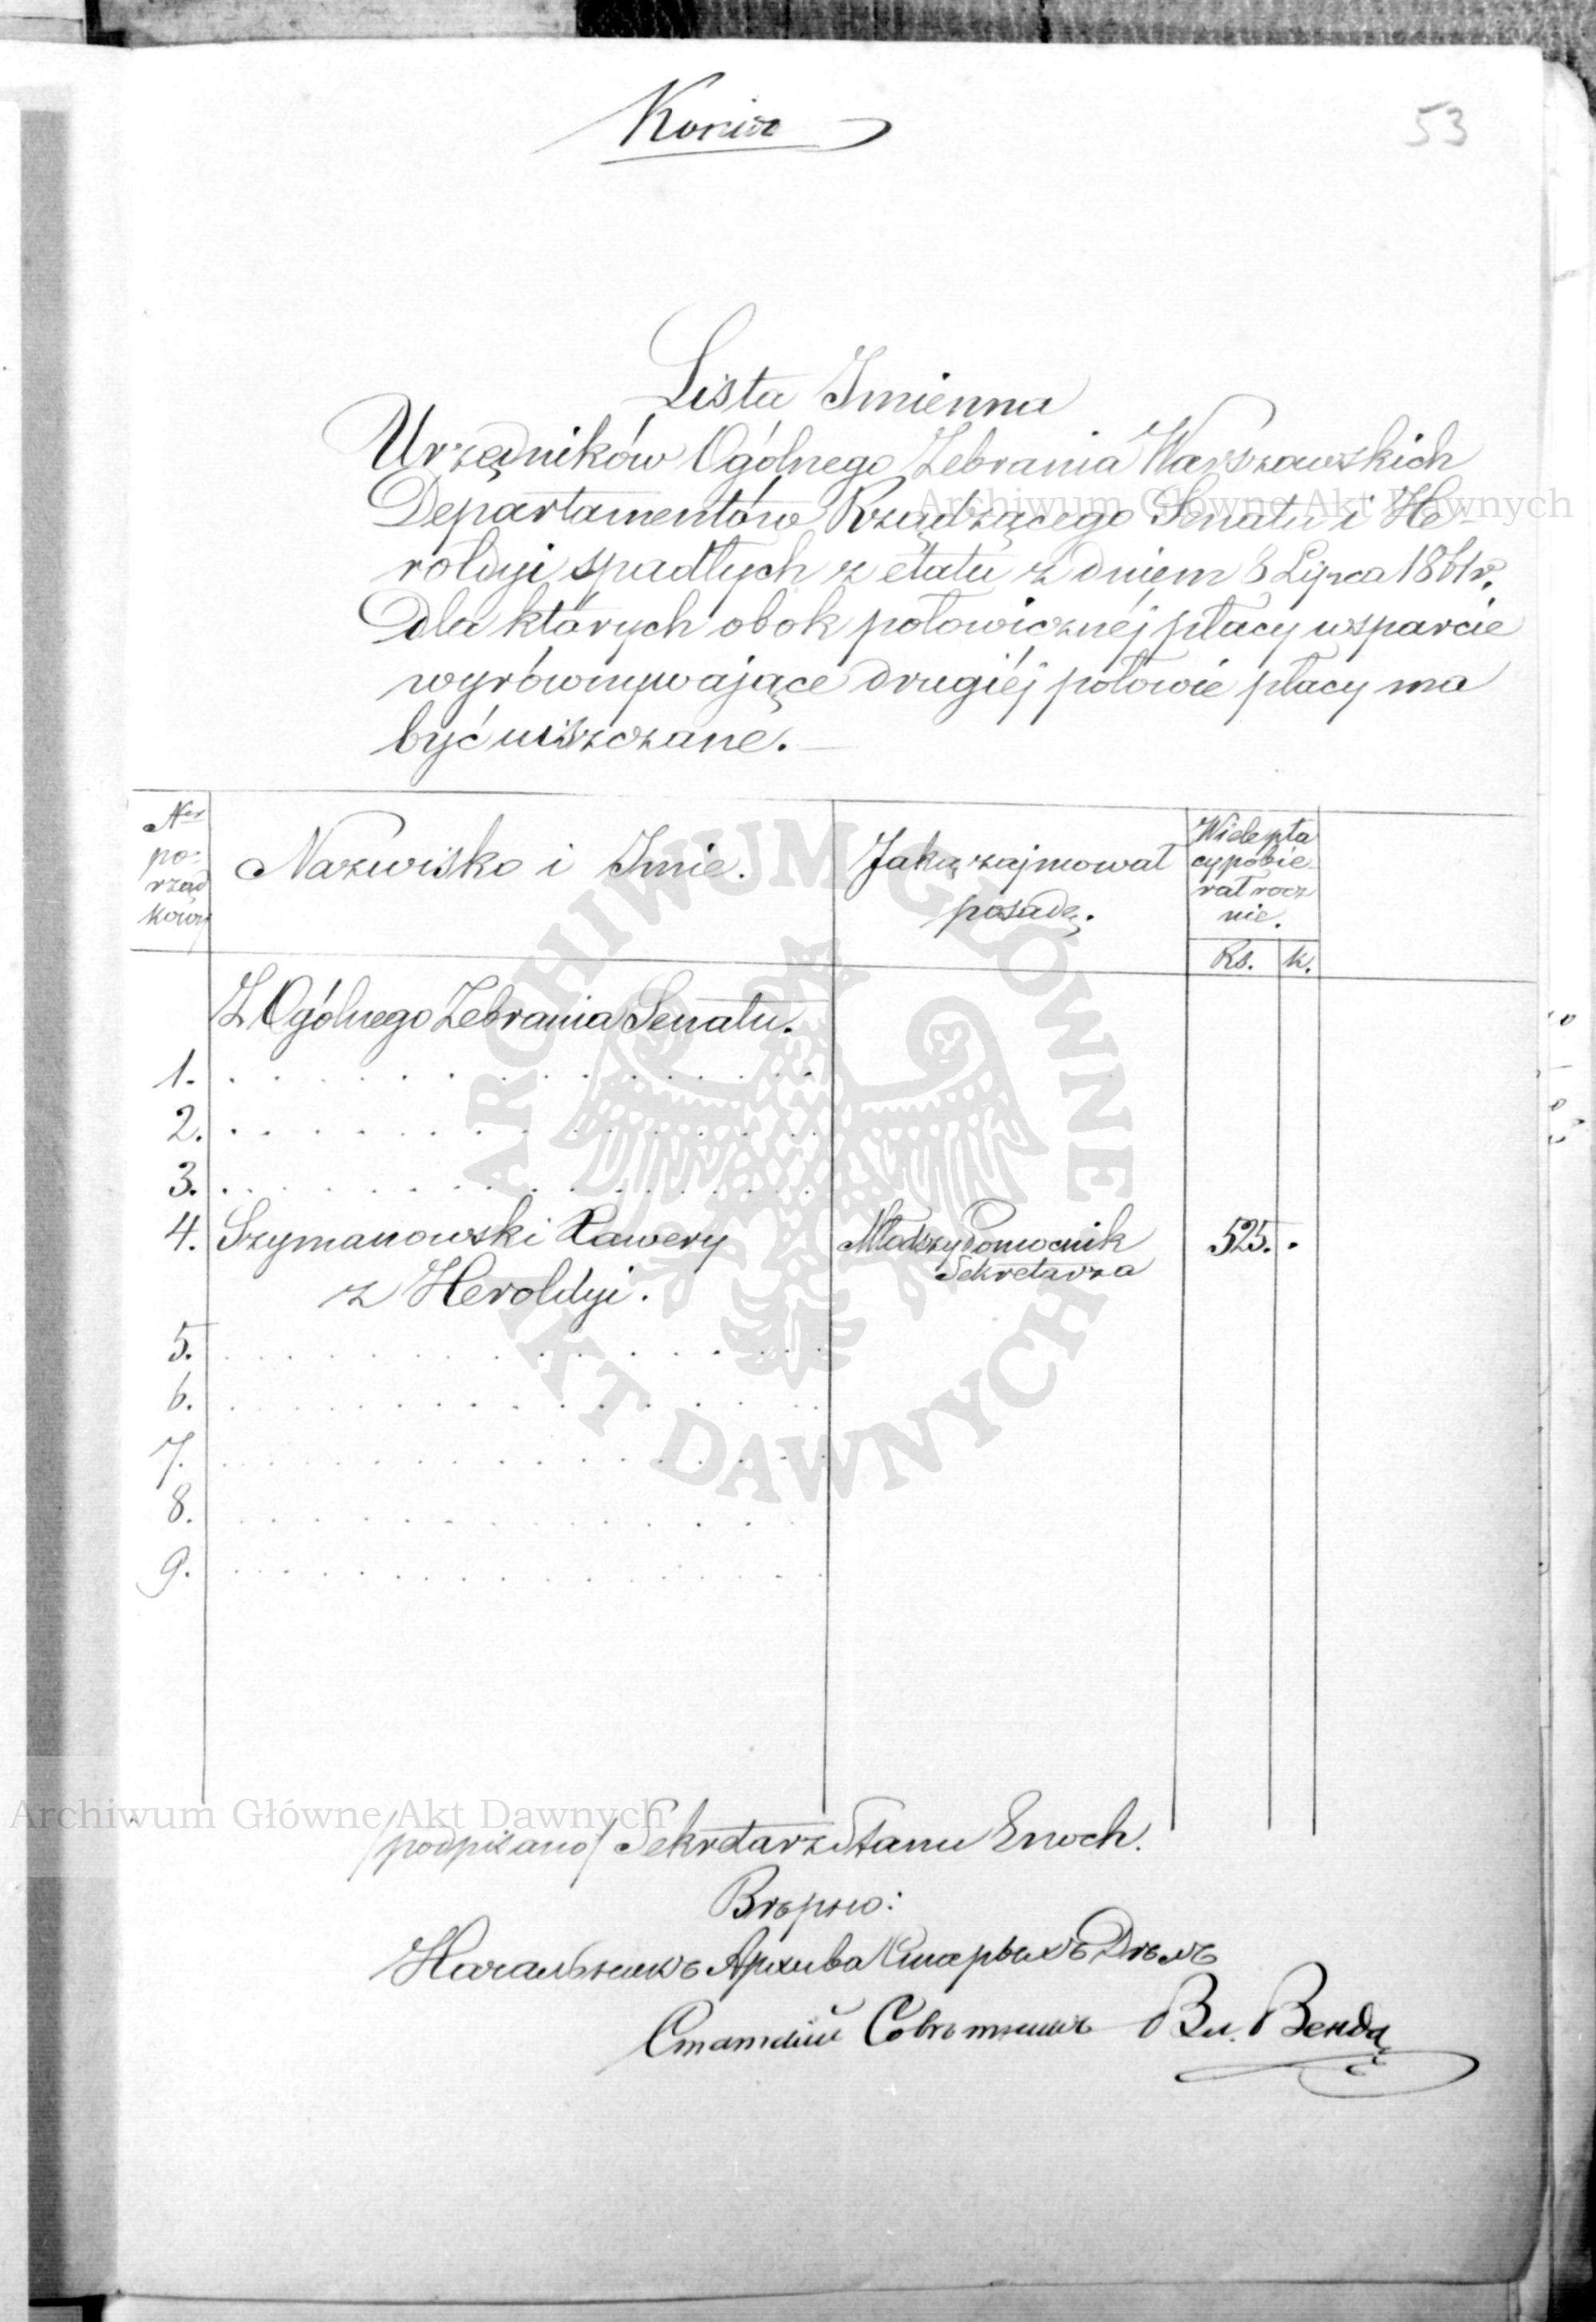 Копия
53
Lista Imienna
Urzędników Ogólnego Zebrania Warszawskich
Departamentów Rządzącego Senatu i He-
roldyi spadłych z etatu z dniem 3 Lipca 1861 r.
dla których obok połowicznéj płacy wsparcie
wyrównywające drugiéj połowie płacy ma
być uiszczane.
Ner
po-
rząd
kowy
Nazwisko i Imie.
Jaką zajmował
posadę.
Wiele pła
cy pobie
rał rocz
nie.
Rs. k.
Z Ogólnego Zebrania Senatu.
1.
2.
3.
4. Szymanowski Xawery Młodszy Pomocnik 525. .
Sekretarza
z Heroldyi.
5.
6.
7.
8.
9.
/podpisano/ Sekretarz Stanu Enoch.
Вѣрно:
Начальникъ Архива Старыхъ Дѣлъ
Статскій Совѣтникъ Вл. Венда
Archiwum Główne Akt Dawnych
ARCHIWUM GŁÓWNE AKT DAWNYCH
Archiwum Główne Akt Dawnych